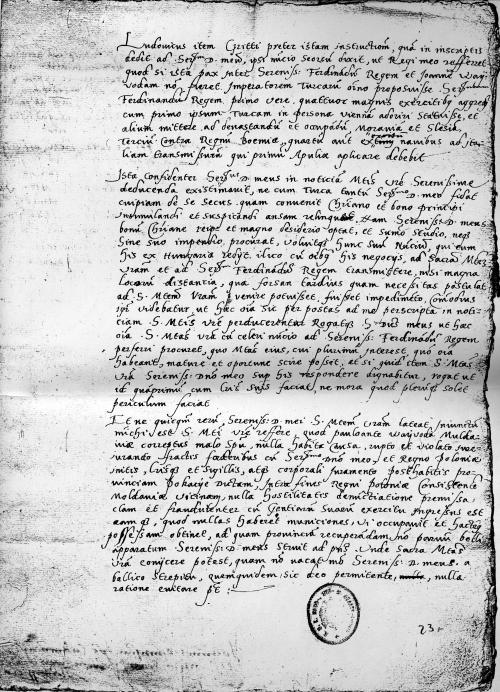 Ludovicus item Gritti preter istam instructionem, quam in inscriptis
dedit ad Ser^mum D. meum, ipsi nuncio seorsum dixit, ut Regi meo referret
quod si ista pax inter Sereniss: Ferdinandum Regem et Joannem Way
vodam non fieret Imperatorem Turcarum omnino proposuisse Ser^mum
Ferdinandum Regem primo vere, quattuor magnis exercitibus aggredi
cum primo ipsum Turcam in persona vienna adoriri statuisse, et
alium mittere ad devastandum et occupandum Moravia et Slesia
Tercium Contra Regnum Boemiae, quartum autem navibus ad Ita
liam transmissurum qui primum Apulia aplicare debebit
Ista Confidenter Ser^mus D. meus in noticiam M^tis Vre Serenissime
deducenda existimavit, ne cum Turca tantum Ser^mo D. meo fidat
cuipiam de se secus quam convenit Christiano et bono principi
et suspicandi ansam relinquat, Nam Sereniss: D. meus
bonum Christiane reipublice et magno desiderio optat, et summo studio, neque
sine suo impendio, procurat, voluitque hunc suum Nuncium, qui cum
his ex Hungaria redyt, illico cum omnibus his negocys, ad Sacram M^tem
Vram et ad Ser^mum Ferdinandum Regem transmittere, nisi magna
Locorum distantia, qua forsan tardius quam necessitas postulat
ad S. M^tem Vram venire potuisset, fuisset impedimento, Comodius
igitur videbatur, ut hac omnia sic per postas ad me perscripta in noti
ciam S. M^tis Vre perducerentur Rogatque S. D. meus ut hac
omnia S. M^tas Vra cum celeri nuncio ad Sereniss: Ferdinandum Regem
perferri procuret, quo M^tas eius, cui plurimum interest, quo omnia
habeant, mature et oportune scire posset, et si quid item S. M^tas
Vra Sereniss: Dno meo super his respondere dignabitur, rogat ut
id quamprimum cum literis suis faciat, ne mora quod plerumque solet
periculum faciat
Et ne quicquam rerum Sereniss: D. mei S. M^tem Vram lateat, iniunctum
michi est S. M^ti Vre referre, quod pauloante Wayvoda Molda
viae correptus malo spiritu, nulla habita causa, rupto et violato iure
iurando fractis foederibus cum Ser^mo Dno meo, et Regno Poloniae
initis, litteris et sigillis, atque corporali iuramento posthabitis pro
vinciam Pokucye dictam, intra fines Regni Poloniae Consistente
Moldaviae vicinam, nulla hostilitatis denuntiatione premissa
clam et fraudulenter cum Gentium suarum exercitu ingressus est
eamque, quod nullas haberet municiones, vi occupavit et hactenus
possessam obtinet, ad quam provinciam recuperandam non parvum belli
apparatum Sereniss: D. meus struit ad presens. Unde Sacra M^tas
Vra conijcere potest, quam non vacat nunc Sereniss: D. meus a
bellico strepitu, quemquidem, sic deo permittente, nulla
ratione evitare potest
23